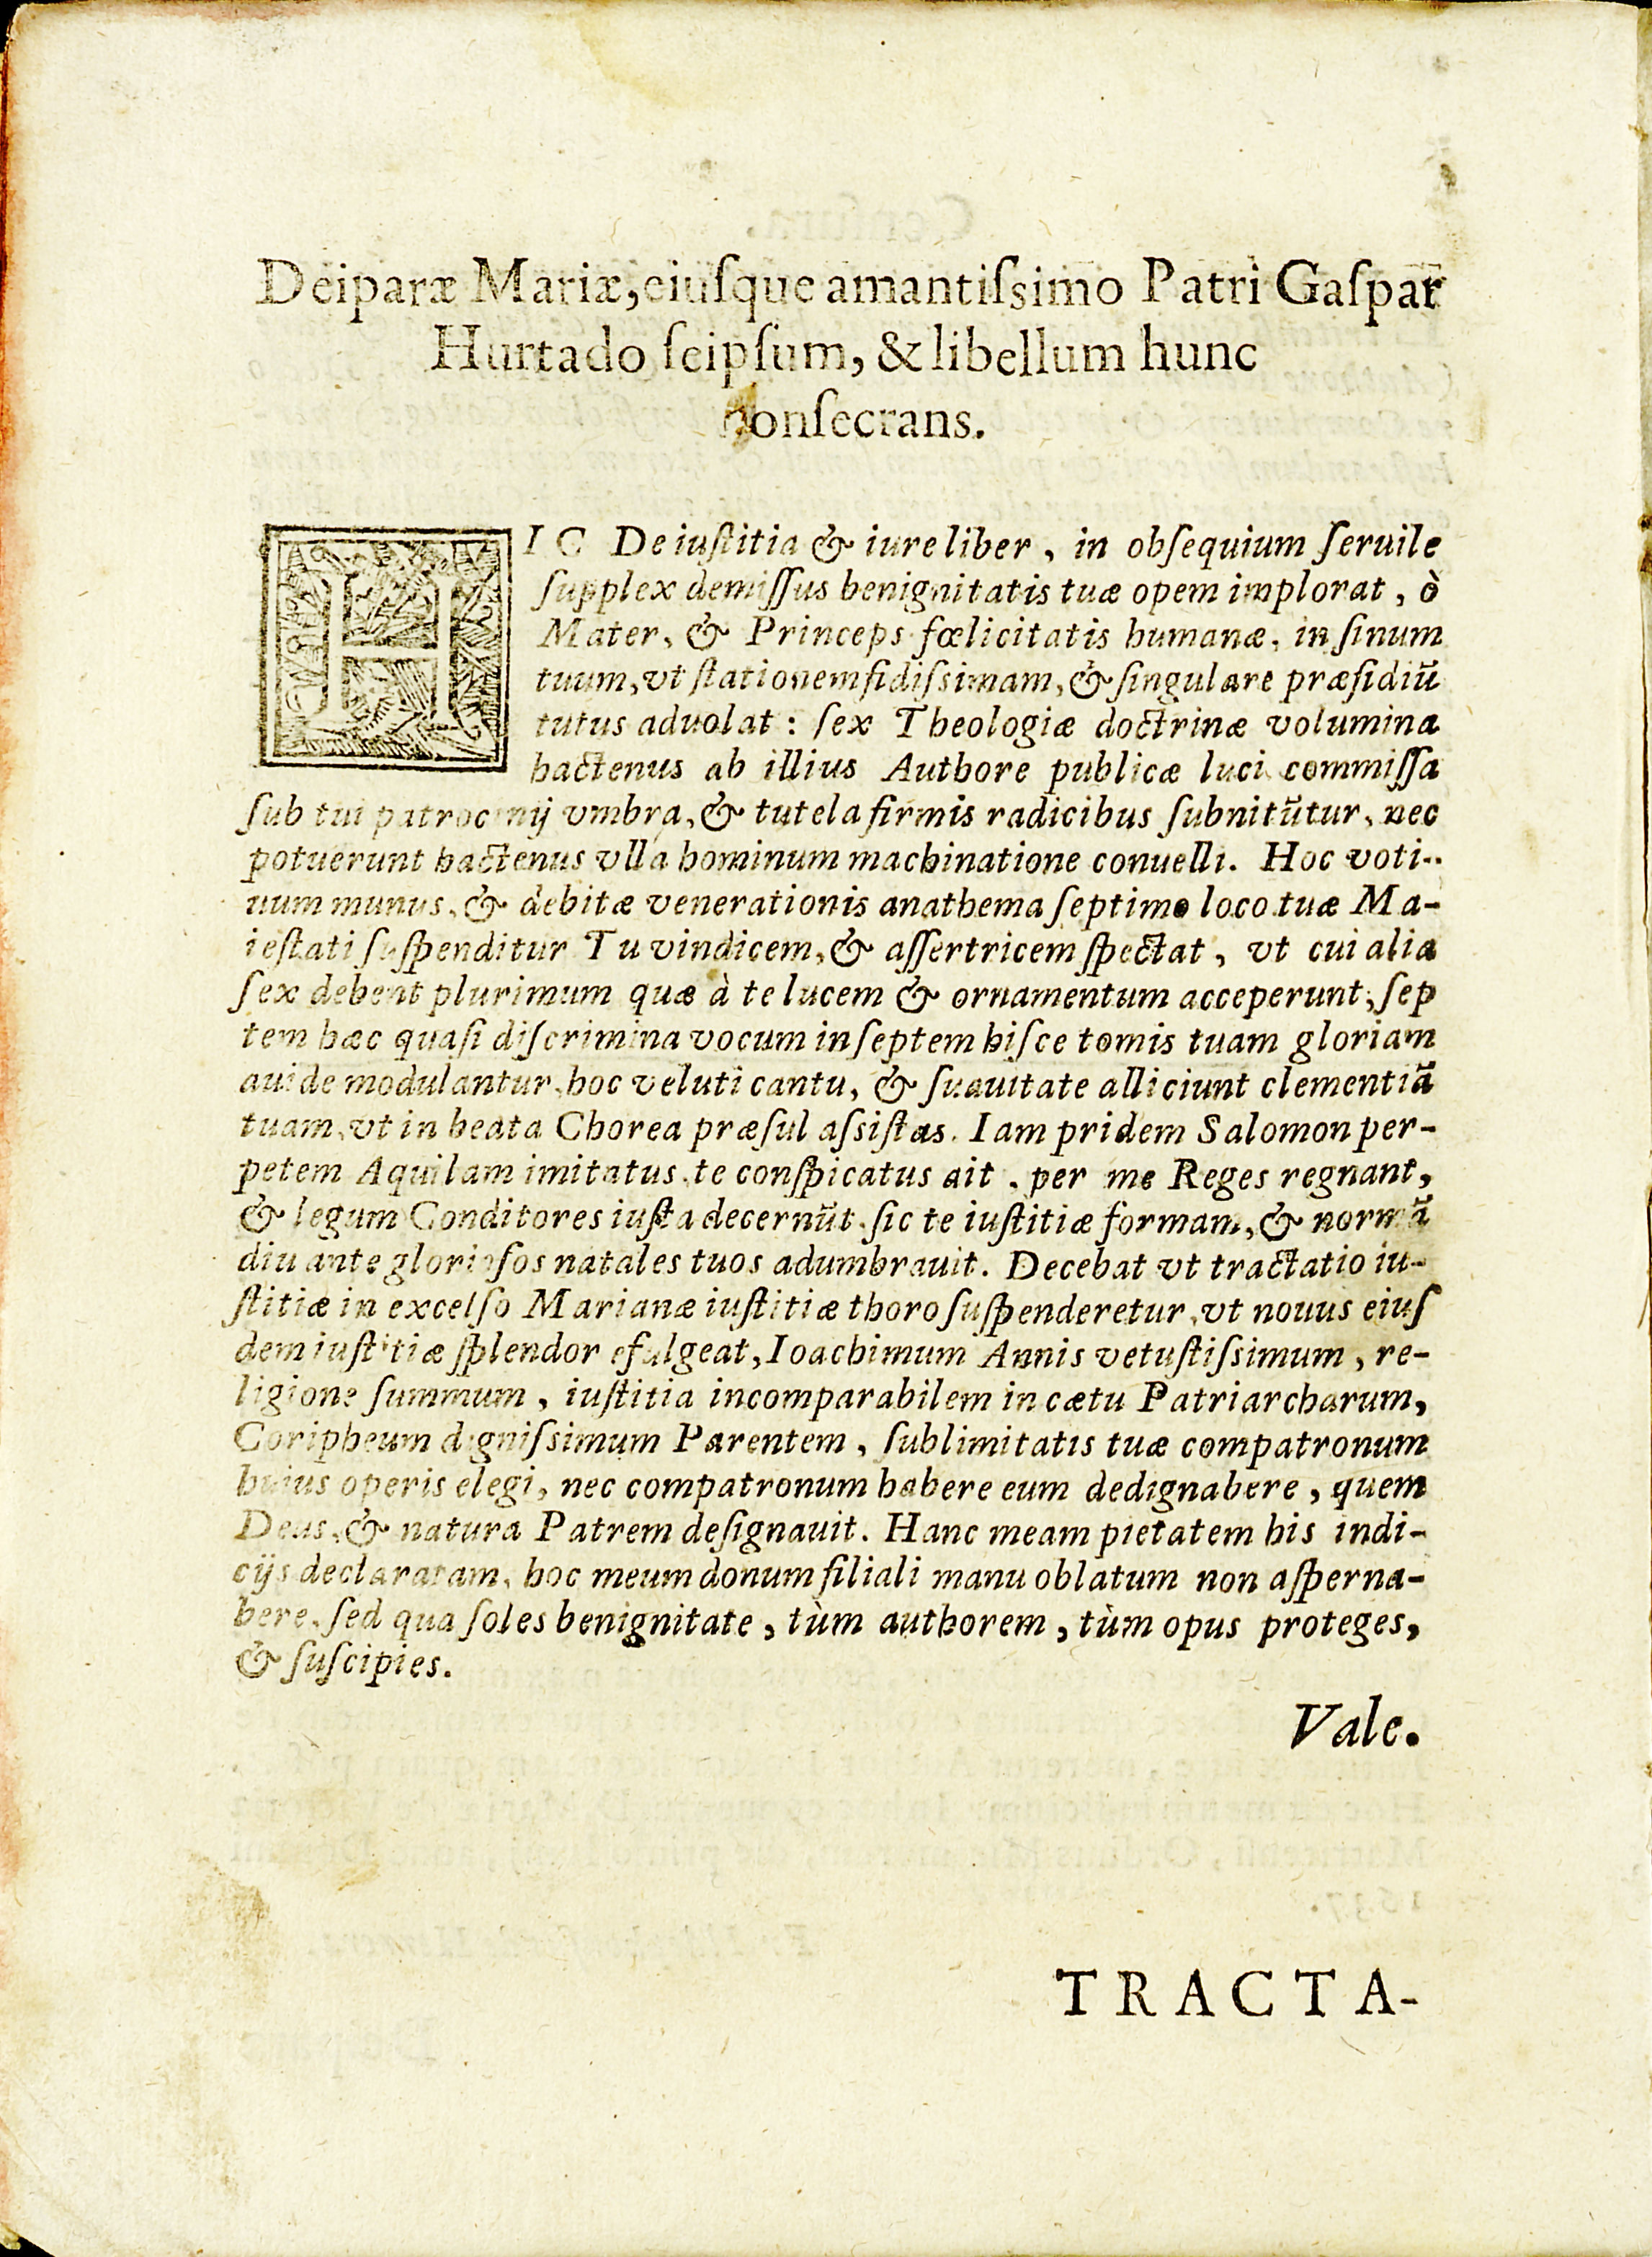 Deiparæ Mariæ, eiuſque amantiſsimo Patri Gaſpar
Hurtado ſeipſum, & libellum hunc
conſecrans.
HIC De iuſtitia & iure liber, in obſequium ſeruile
ſupplex demiſſus benignitatis tuæ opem implorat, ò
Mater, & Princeps fœlicitatis humanæ, in ſinum
tuum, vt ſtationem fidiſsimam, & ſingulare præſidiũ
tutus aduolat: ſex Theologiæ doctrinæ volumina
hactenus ab illius Authore publicæ luci commiſſa
ſub tui patrocinij vmbra, & tutela firmis radicibus ſubnitũtur, nec
potuerunt hactenus vlla hominum machinatione conuelli. Hoc voti-
uum munus, & debitæ venerationis anathema ſeptimo loco tuæ Ma-
ieſtati ſuſpenditur Tu vindicem, & aſſertricem ſpectat, vt cui alia
ſex debent plurimum quæ à te lucem & ornamentum acceperunt, ſep
tem hæc quaſi diſcrimina vocum in ſeptem hiſce tomis tuam gloriam
auide modulantur, hoc veluti cantu, & ſuauitate alliciunt clementiã
tuam, vt in beata Chorea præſul aſsiſtas. Iam pridem Salomon per-
petem Aquilam imitatus, te conſpicatus ait, per me Reges regnant,
& legum Conditores iuſta decernũt, ſic te iuſtitiæ formam, & normã
diu ante glorioſos natales tuos adumbrauit. Decebat vt tractatio iu-
ſtitiæ in excelſo Marianæ iuſtitiæ thoro ſuſpenderetur, vt nouus eiuſ
dem iuſtitiæ ſplendor efulgeat, Ioachimum Annis vetuſtiſsimum, re-
ligione ſummum, iuſtitia incomparabilem in cætu Patriarcharum,
Coripheum digniſsimum Parentem, ſublimitatis tuæ compatronum
huius operis elegi, nec compatronum habere eum dedignabere, quem
Deus, & natura Patrem deſignauit. Hanc meam pietatem his indi-
cijs declaratam, hoc meum donum filiali manu oblatum non aſperna-
bere, ſed qua ſoles benignitate, tùm authorem, tùm opus proteges,
& ſuſcipies.
Vale.
TRACTA-